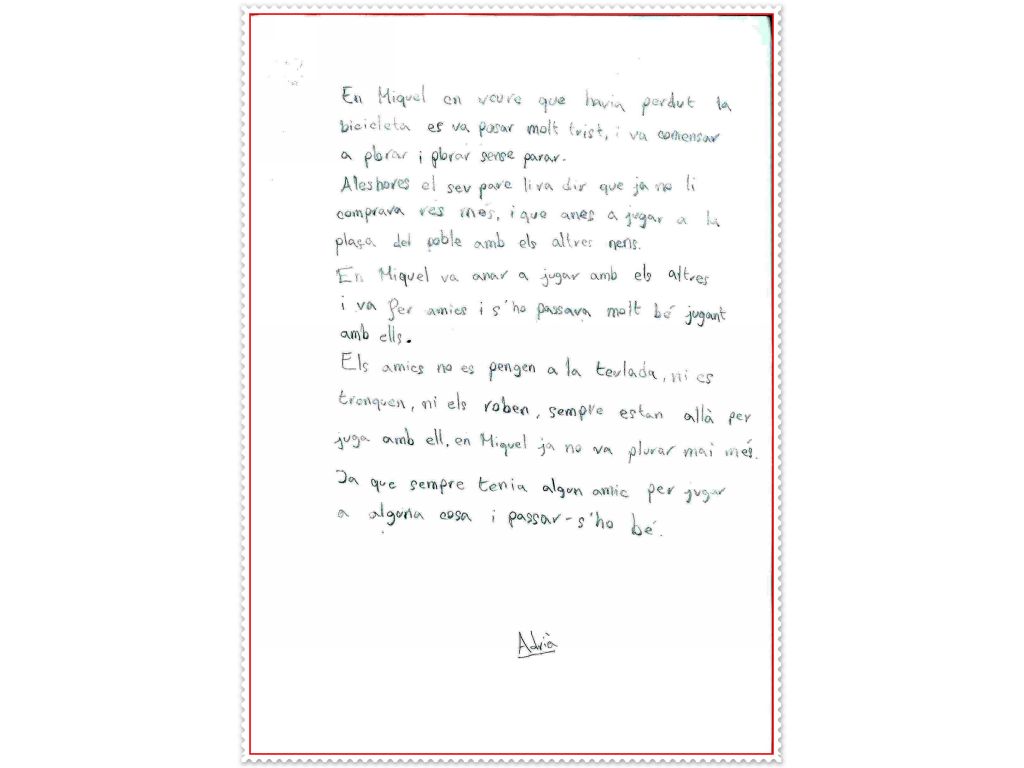 En Miquel en veure que havia perdut la
bicicleta es va posar molt trist, i va comensar
a plorar i plorar sense parar.
Aleshores el seu pare li va dir que ja no li
comprava res més, i que anes a jugar a la
plaça del poble amb els altres nens.
En Miquel va anar a jugar amb els altres
i va fer amics i s'ho passava molt bé jugant
amb ells.
Els amics no es pengen a la teulada, ni es
trenquen, ni els roben, sempre estan allà per
juga amb ell, en Miquel ja no va plurar mai més.
Ja que sempre tenia algun amic per jugar
a alguna cosa i passar-s'ho bé.
Adrià